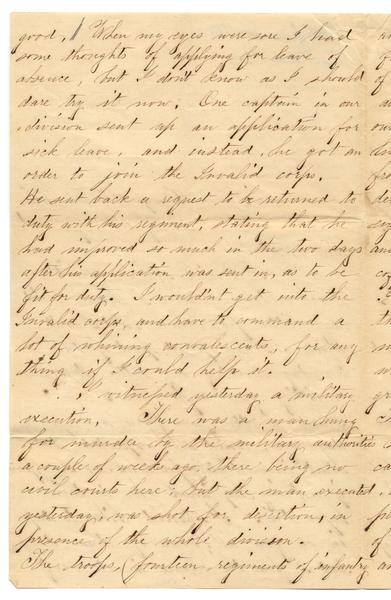 good. When my eyes were sore I had
some thoughts of applying for leave of
absence, but I don't know as I should
dare try it now. One captain in our
division sent up an application for
sick leave, and instead, he got an
order to join the Invalid corps.
He sent back a request to be returned to
duty with his regiment, stating that he
had improved so much in the two days
after his application was sent in, as to be
fit for duty. I wouldn't get into the
Invalid corps, and have to command a
lot of whining convalescents, for any
thing if I could help it.
I witnessed yesterday a military
execution. There was a man hung
for murder by the military authorities
a couple of weeks ago, there being no
civil courts here, but the man executed
yesterday, was shot for desertion, in
presence of the whole division.
The troops, (fourteen regiments of infantry